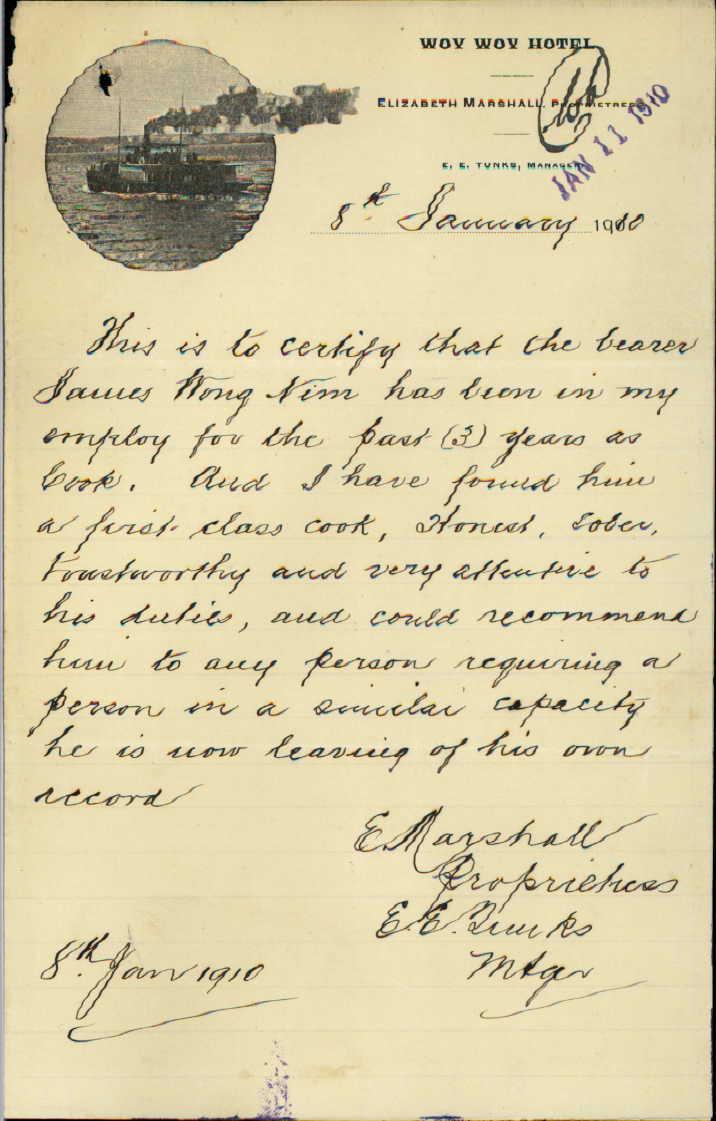 WOY WOY HOTEL
ELIZABETH MARSHALL, PROPRIETRESS
E. E. TUNKS, MANAGER
JAN 11 1910
8th January 1910
This is to certify that the bearer
James Wong Nim has been in my
employ for the past (3) years as
Cook. And I have found him
a first class cook, Honest, sober,
trustworthy and very attentive to
his duties, and could recommend
him to any person requiring a
person in a similar capacity
he is now leaving of his own
accord
E. Marshall
Proprietress
E. E. Tunks
Mtgr
8th. Jan 1910